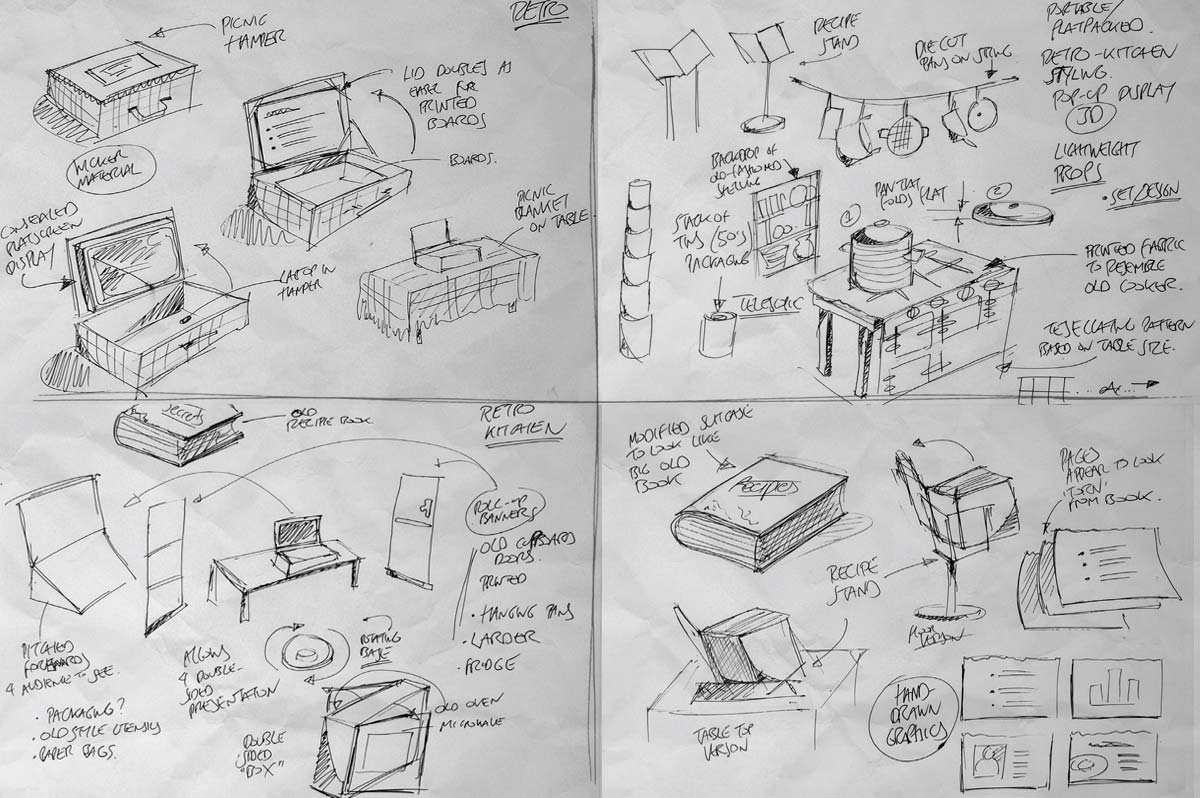 RETRO
PICNIC
HAMPER
LID DOUBLES AS
EASEL FOR
PRINTED
BOARDS
BOARDS.
WICKER
MATERIAL
CONSEALED
FLATSCREEN
DISPLAY
LAPTOP IN
HAMPER
PICNIC
BLANKET
ON TABLE
RECIPE
STAND
DIE CUT
PANS ON STRING
PORTABLE/
FLATPACKED.
RETRO-KITCHEN
STYLING.
POP-UP DISPLAY
3D
LIGHTWEIGHT
PROPS
• SET/DESIGN
BACKDROP OF
OLD-FASHIONED
SHELVING
STACK OF
TINS (50'S)
PACKAGING
TELESCOPIC
PAN THAT
FOLDS FLAT
1
2
PRINTED FABRIC
TO RESEMBLE
OLD COOKER.
TESELLATING PATTERN
BASED ON TABLE SIZE.
SECRETS
OLD
RECIPE BOOK
RETRO
KITCHEN
ROLL-UP
BANNERS
OLD CUPBOARD
DOORS.
PRINTED
• HANGING PANS
• LARDER
• FRIDGE
PITCHED
FORWARDS
4 AUDIENCE TO SEE.
• PACKAGING?
• OLD STYLE UTENSILS
• PAPER BAGS.
ALLOWS
4 DOUBLE-
SIDED
PRESENTATION
ROTATING
BASE
DOUBLE
SIDED
"BOX"
OLD OVEN
MICROWAVE
MODIFIED SUITCASE
TO LOOK LIKE
BIG OLD
BOOK
Recipes
PAGES
APPEAR TO LOOK
'TORN'
FROM BOOK.
RECIPE
STAND
FLOOR
VERSION
TABLE TOP
VERSION
HAND-
DRAWN
GRAPHICS